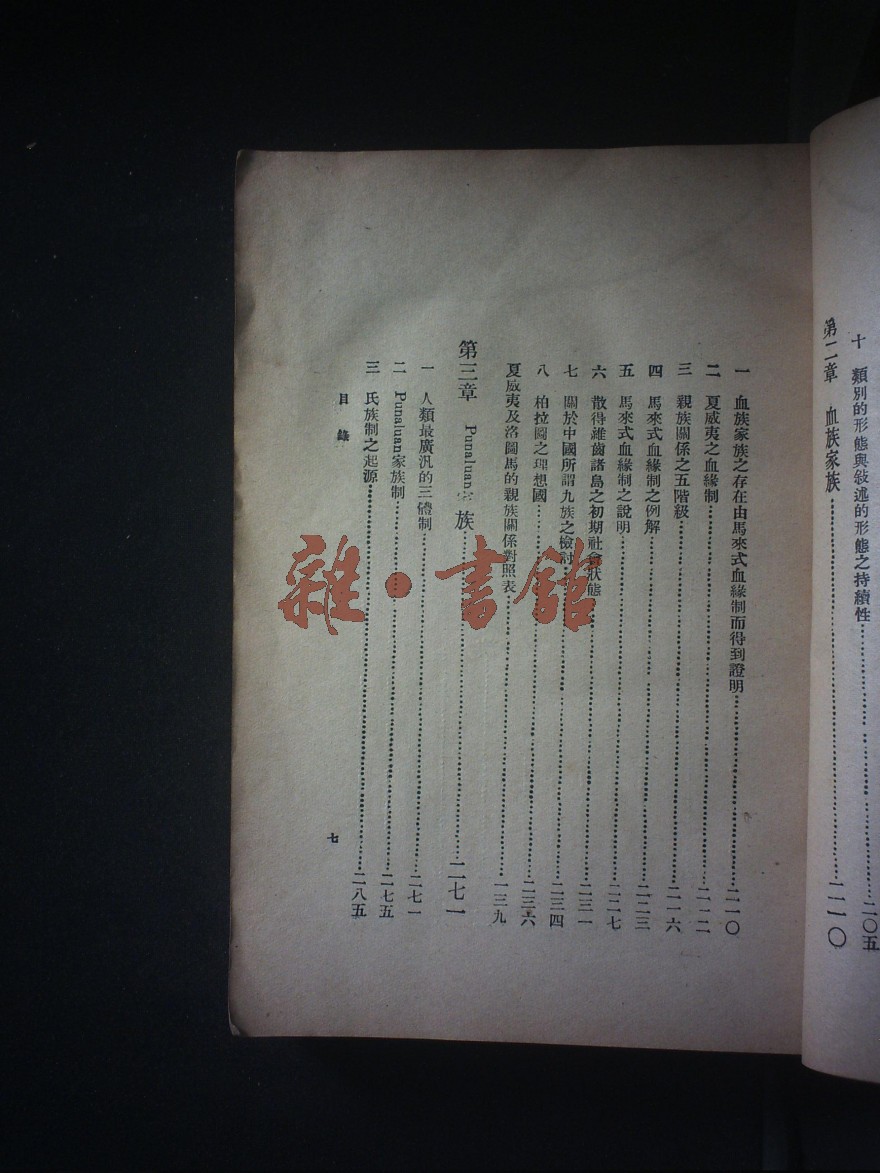 十　類別的形態與敍述的形態之持續性……二〇五
第二章　血族家族……二一〇
一　血族家族之存在由馬來式血緣制而得到證明……二一〇
二　夏威夷之血緣制……二一二
三　親族關係之五階級……二一六
四　馬來式血緣制之例解……二二三
五　馬來式血緣制之說明……二二七
六　散得維齒諸島之初期社會狀態……二三一
七　關於中國所謂九族之檢討……二三四
八　柏拉圖之理想國……二三六
夏威夷及洛圖馬的親族關係對照表……一三九
第三章　Punaluan家族……二七一
一　人類最廣汎的三體制……二七一
二　Punaluan家族制……二七五
三　氏族制之起源……二八五
目錄
七
雜·書館